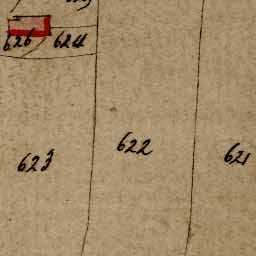 626 624
623 622 621